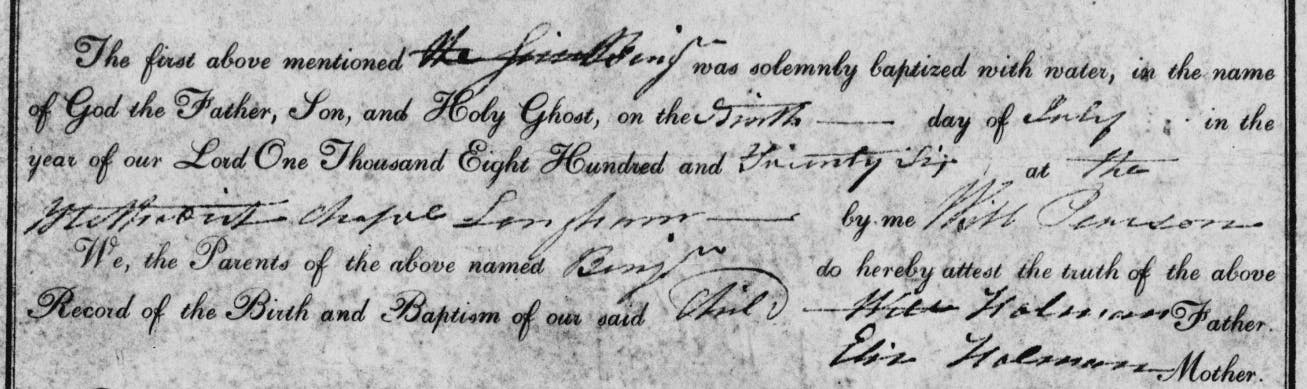 The first above mentioned the Benjn was solemnly baptized with water, in the name
of God the Father, Son, and Holy Ghost, on the Ninth — day of July in the
year of our Lord One Thousand Eight Hundred and Twenty Six at the
Methodist Chapel Langham — by me Will Pearson
We, the Parents of the above named Benjn do hereby attest the truth of the above
Record of the Birth and Baptism of our said Child — Will Holman Father.
Eliz Holman Mother.